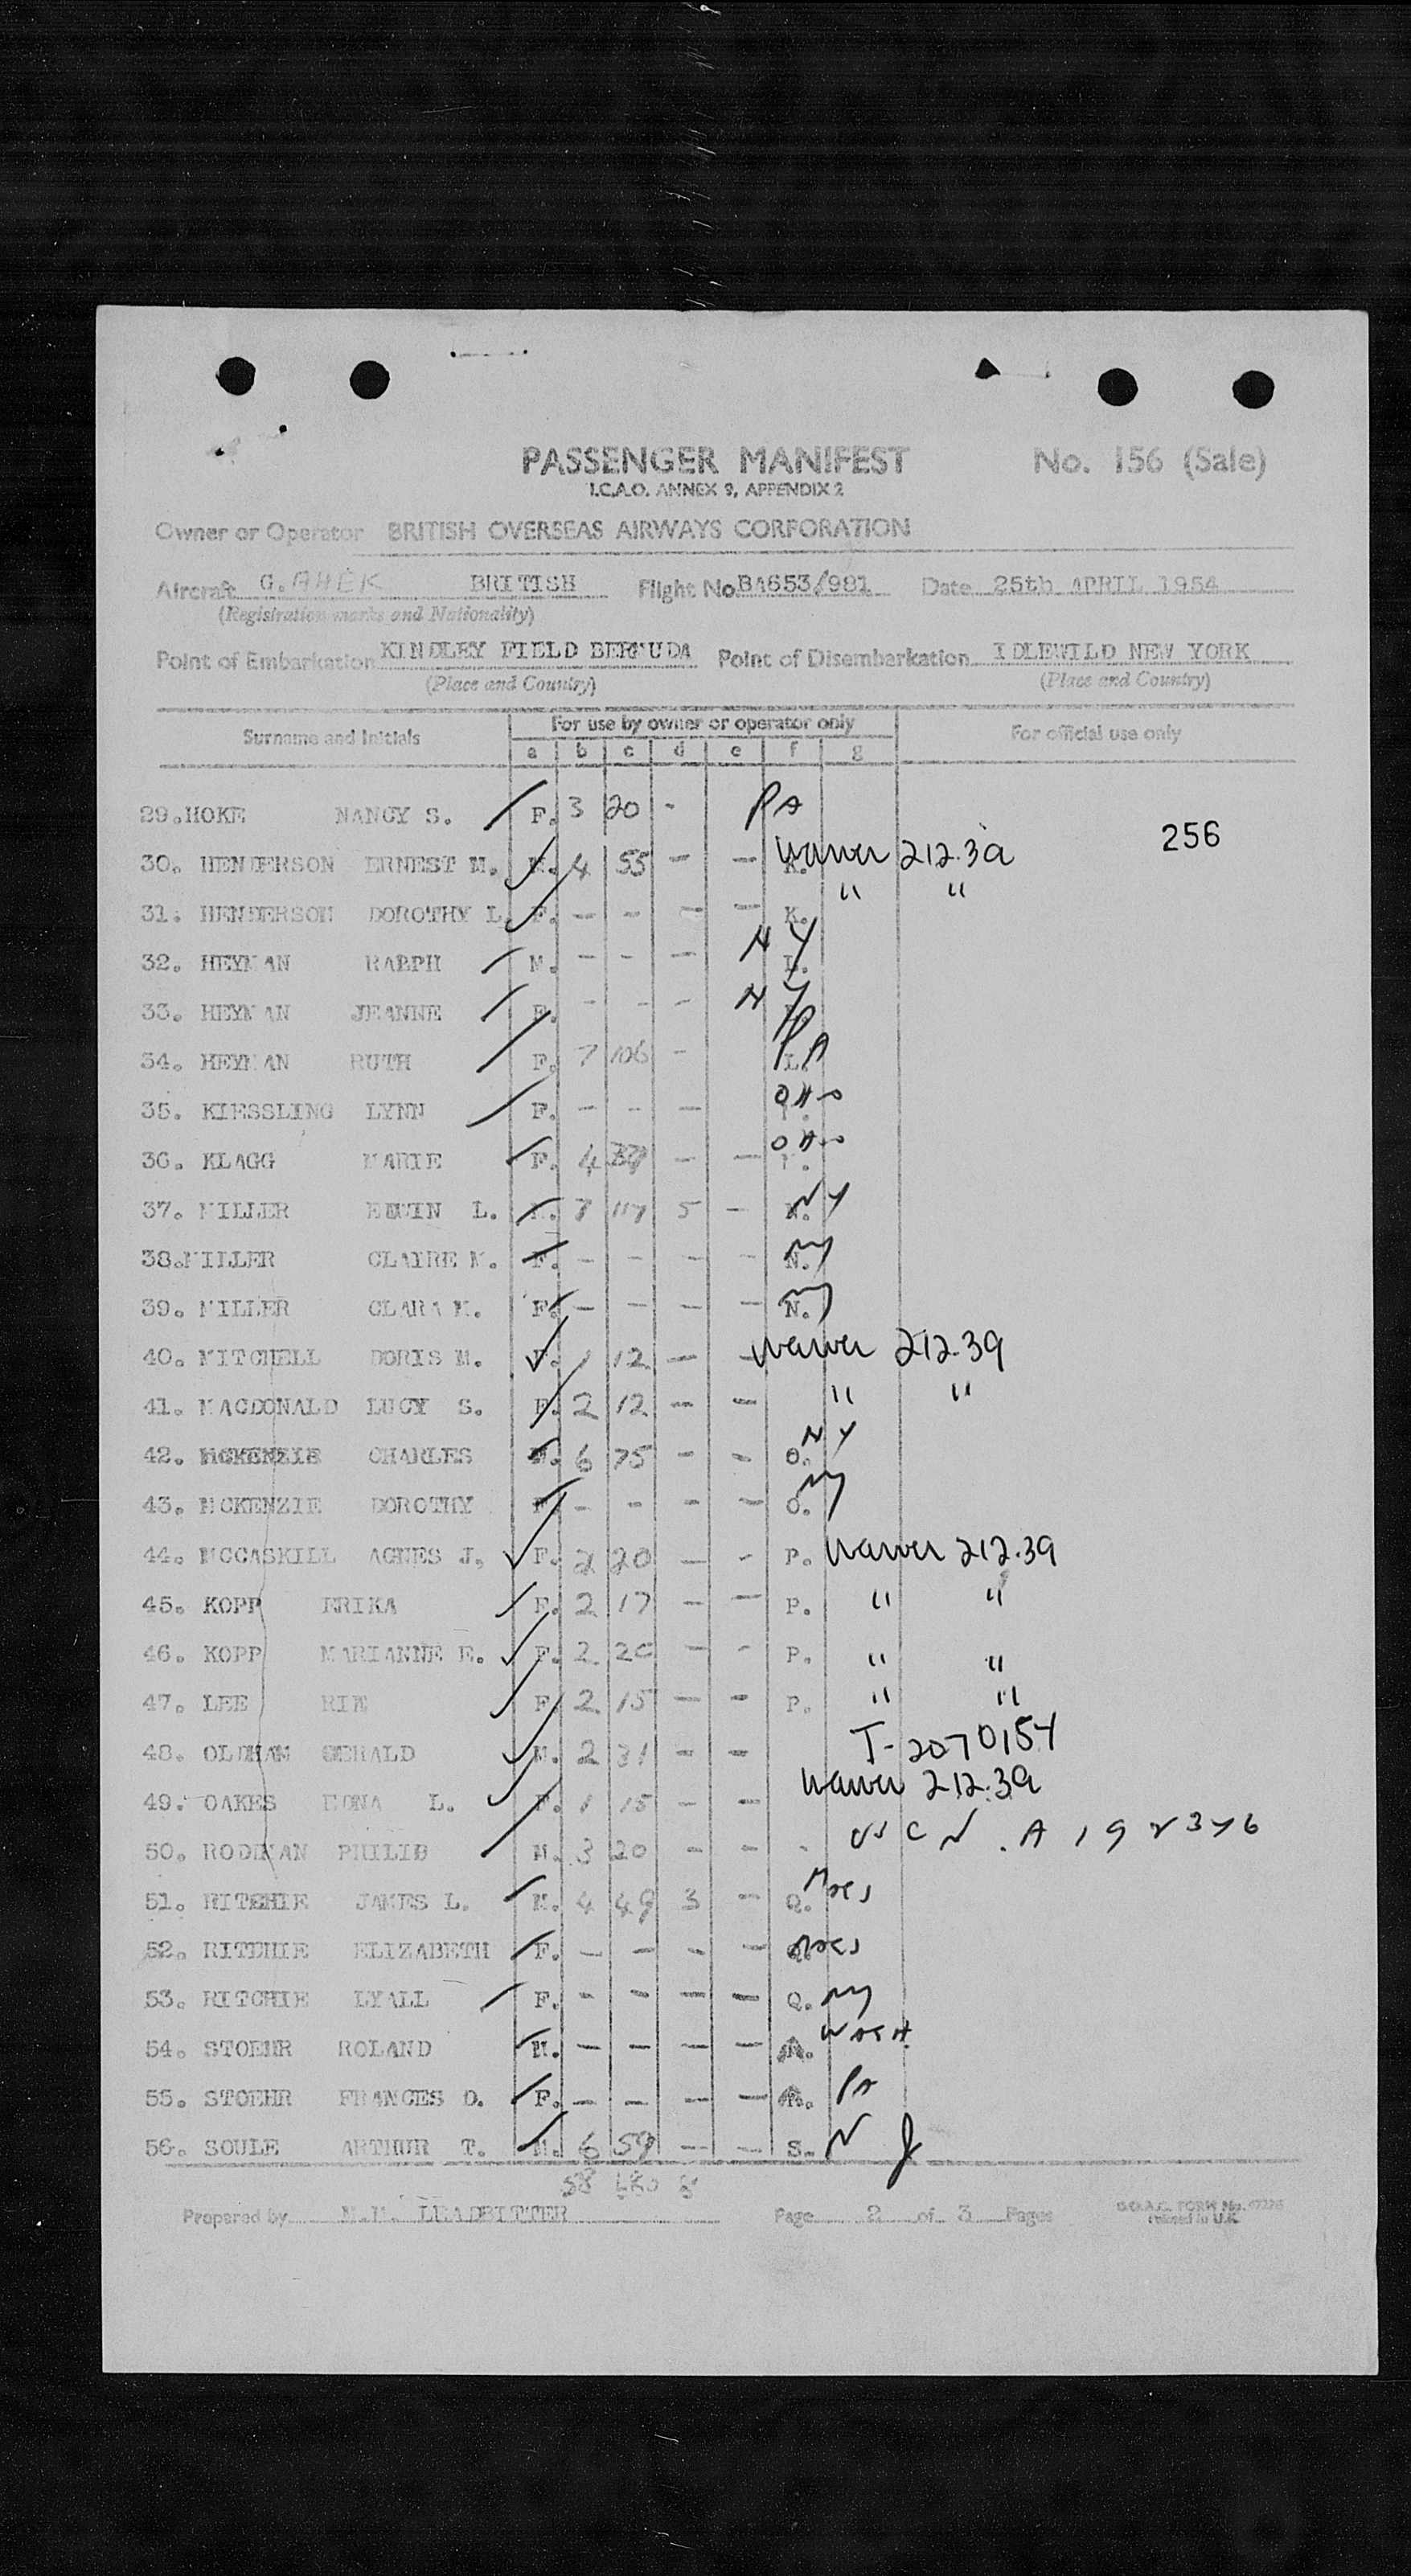 PASSENGER MANIFEST No. 156 (Sale)
I.C.A.O. ANNEX 9, APPENDIX 2
Owner or Operator BRITISH OVERSEAS AIRWAYS CORPORATION
Aircraft G. AHEK BRITISH Flight No. BA653/981 Date 25th APRIL 1954
(Registration marks and Nationality)
Point of Embarkation KINDLEY FIELD BERMUDA Point of Disembarkation IDLEWILD NEW YORK
(Place and Country) (Place and Country)
Surname and Initials For use by owner or operator only For official use only
a b c d e f g
29. HOKE NANCY S. F. 3 20 - PA
256
30. HENDERSON ERNEST M. M. 4 55 - - K. Waiver 212.39
31. HENDERSON DOROTHY L. F. - - - - K. " "
32. HEYMAN RALPH M. - - - L. NY
33. HEYMAN JEANNE F. - - - NY
34. HEYMAN RUTH F. 7 106 - L. PA
35. KIESSLING LYNN F. - - - OHIO
36. KLAGG MARIE F. 4 - - OHIO
37. MILLER EDWIN L. M. 7 117 5 - N. NY
38. MILLER CLAIRE M. F. - - - - N. NY
39. MILLER CLARA M. F. - - - - N. NY
40. MITCHELL DORIS M. F. 1 12 - - Waiver 212.39
41. MACDONALD LUCY S. F. 2 12 - - " "
42. MCKENZIE CHARLES M. 6 75 - - O. NY
43. MCKENZIE DOROTHY F. - - - - O. NY
44. MCCASKILL AGNES J, F. 2 20 - - P. Waiver 212.39
45. KOPP ERIKA F. 2 17 - - P. " "
46. KOPP MARIANNE E. F. 2 20 - - P. " "
47. LEE RIE F. 2 15 - - P. " "
48. OLDHAM GERALD M. 2 31 - - T-2070154
49. OAKES EDNA L. F. 1 15 - - Waiver 212.39
50. RODMAN PHILIP M. 3 20 - - - USCN. A192376
51. RITCHIE JAMES L. M. 4 49 3 - Q. Mass
52. RITCHIE ELIZABETH F. - - - - Q. Mass
53. RITCHIE LYALL F. - - - - Q. NY
54. STOEHR ROLAND M. - - - - R. WASH.
55. STOEHR FRANCES D. F. - - - - R. PA
56. SOULE ARTHUR T. M. 6 59 - - S. NJ
58 8
Prepared by M.M. LEADBITTER Page 2 of 3 Pages
B.O.A.C. FORM No.
Printed in U.K.